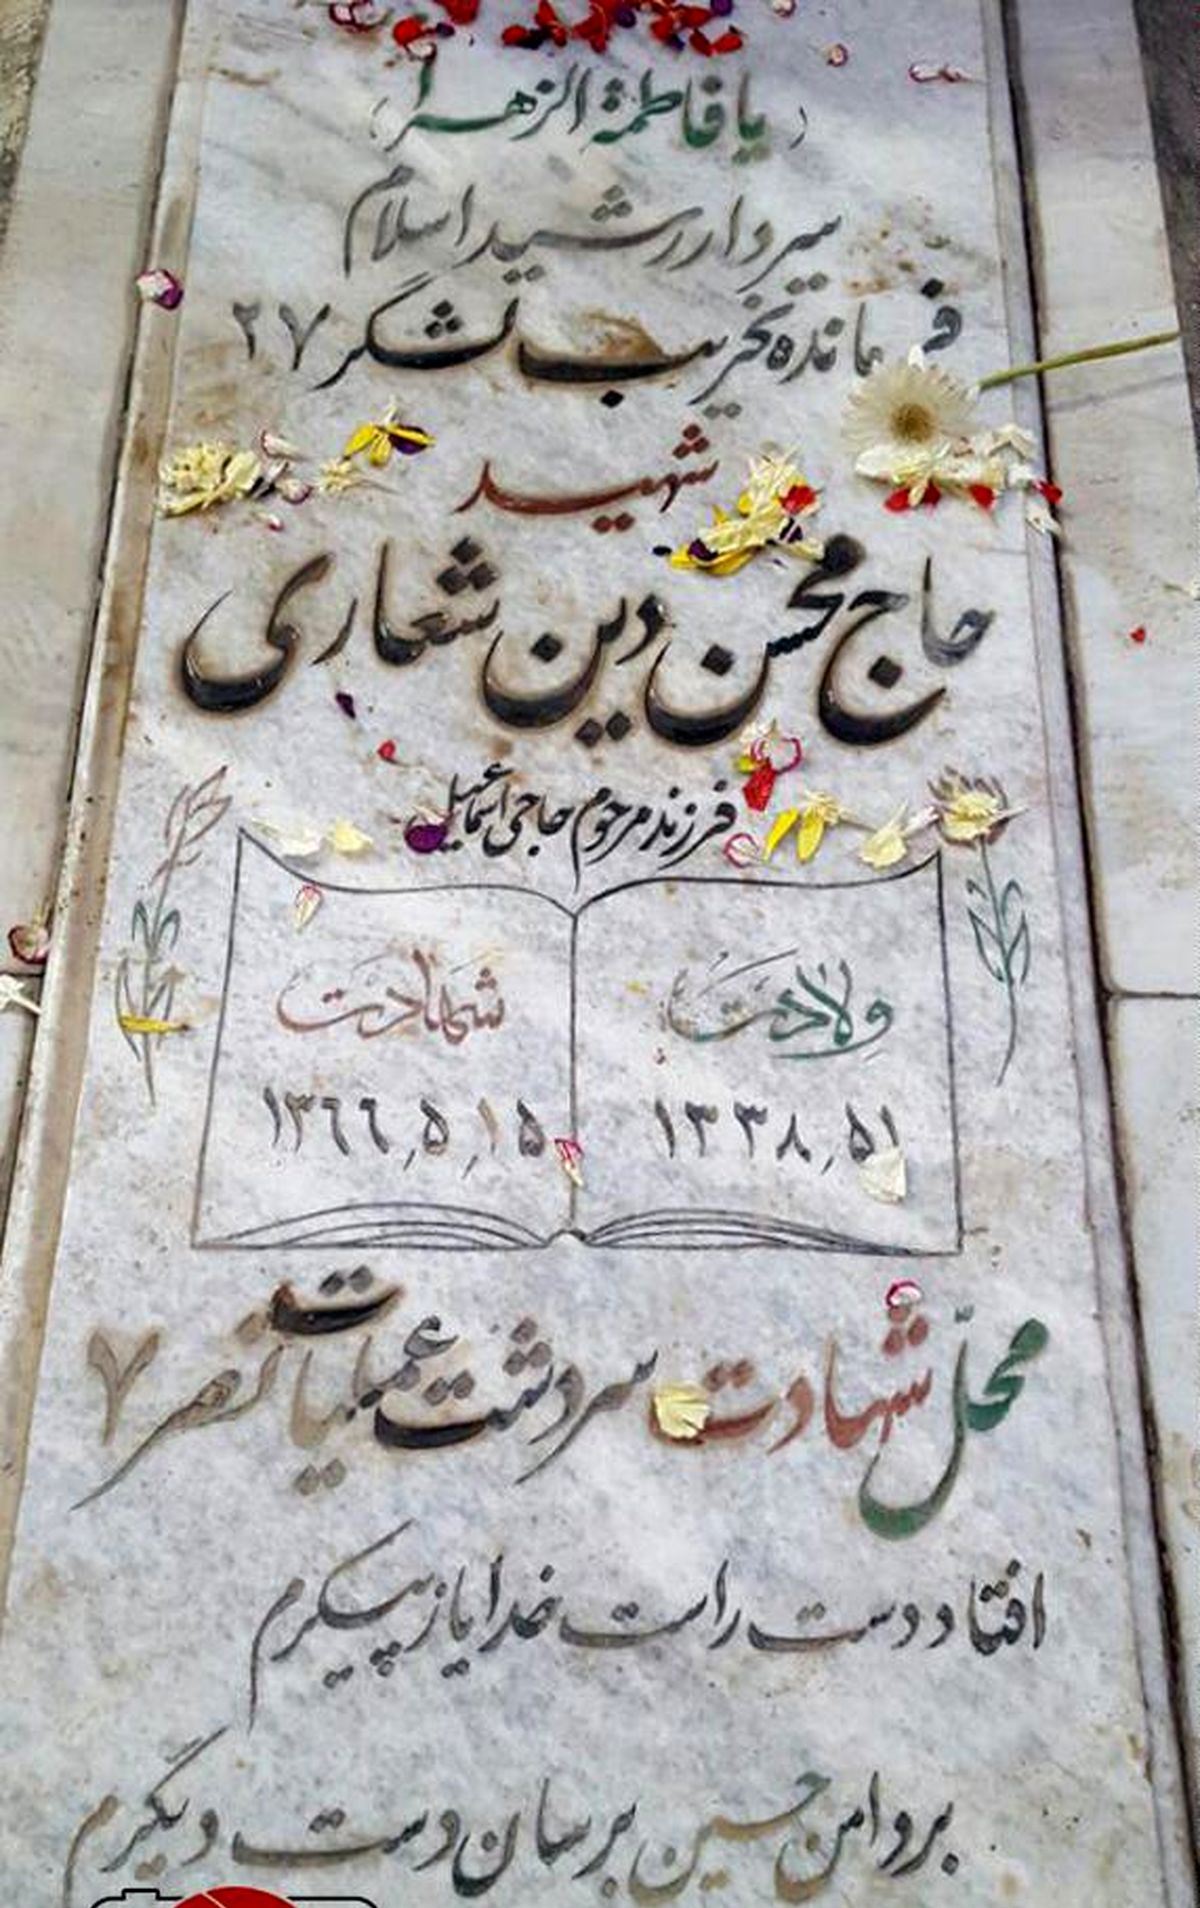 یا فاطمة الزهرا
سردار رشید اسلام
فرمانده تخریب لشگر ۲۷
شهید
حاج محسن دین شعاری
فرزند مرحوم حاجی اسماعیل
ولادت
۱۳۳۸٫۵۱
شهادت
۱۳۶۶٫۵٫۱۵
محلّ شهادت سردشت عملیات نصر ۷
افتاد دست راست خدایا ز پیکرم
بر دامن حسین برسان دست دیگرم